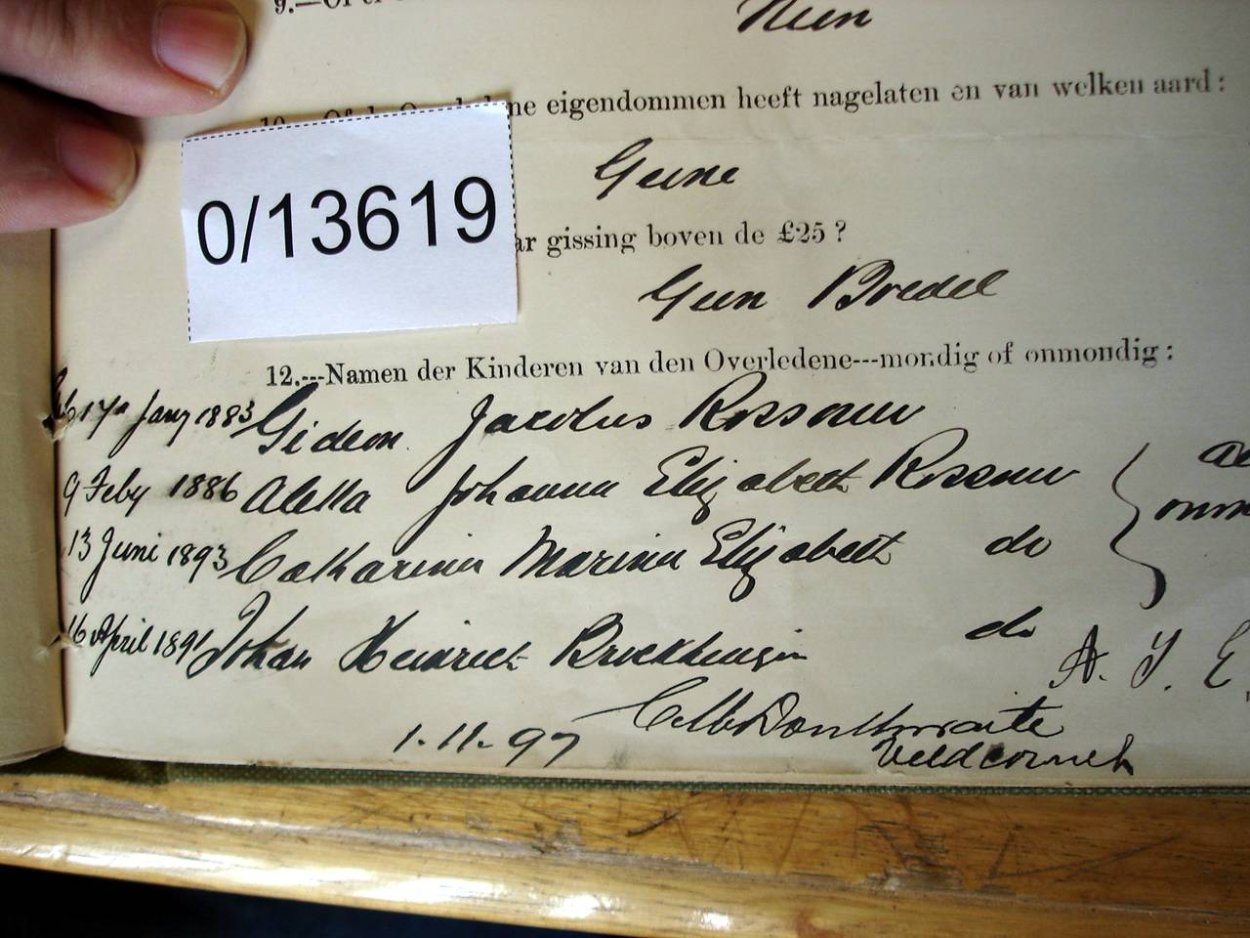 Neen
ne eigendommen heeft nagelaten en van welken aard :
Geene
0/13619
ar gissing boven de £25 ?
Geen Boedel
12.---Namen der Kinderen van den Overledene---mondig of onmondig :
17n Jany 1883 Gideon Jacobus Rossouw
9 Feby 1886 Aletta Johanna Elizabeth Rossouw
13 Juni 1893 Catharina Marina Elizabeth do
16 April 1891 Johan Heinrich do
A. J. E.
Veldcornet
1-11-97